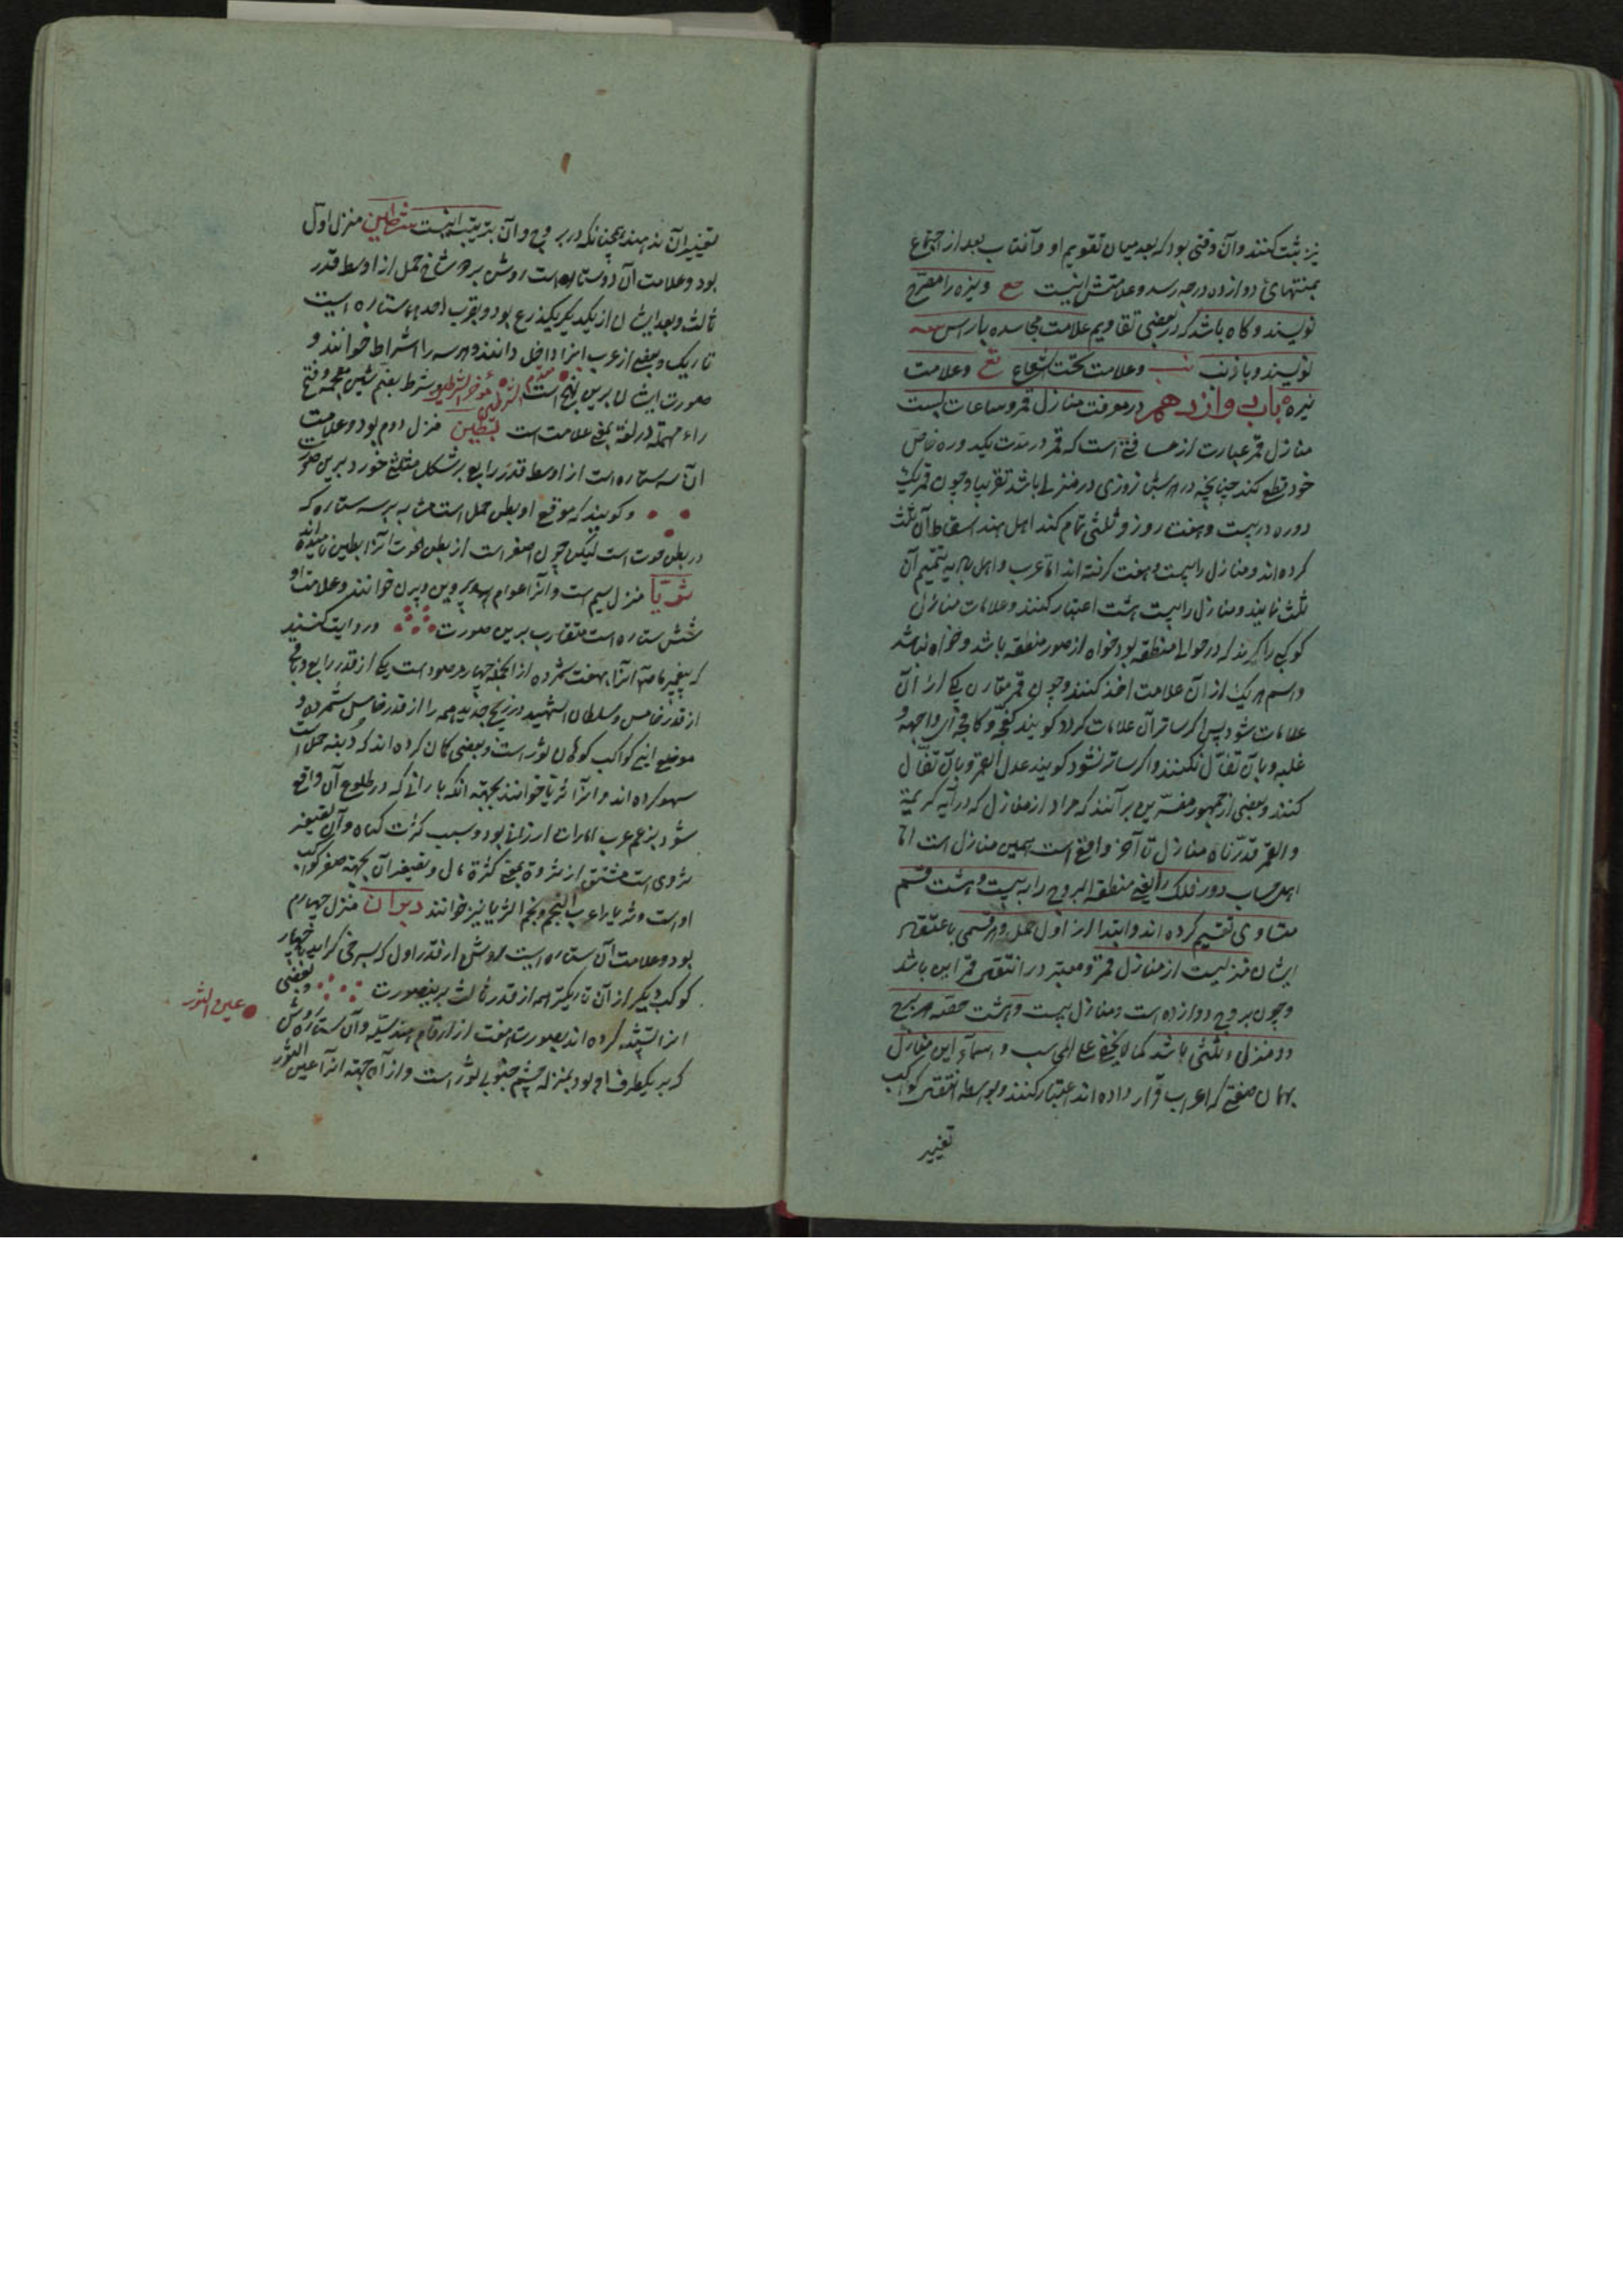 نیز ثبت کنند وآن وقتی بود که بعد میان تقویم او وآفتاب بعد از اجتماع
بمنتهای دوازده درجه رسد وعلامتش اینست مع
نویسند وگاه باشد که در بعضی تقاویم علامت مجاسده بارأس
نویسند وباذنب وعلامت تحت الشعاع تع وعلامت
نیره باب دوازدهم در معرفت منازل قمر وساعات بست
منازل قمر عبارت از مسافتی است که قمر در مدت یکدوره خاص
خود قطع کند چنانچه در هر شبانروزی در منزلی باشد تقریبا وچون قمر یک
دوره در بیست وهفت روز وثلثی تمام کند اهل هند اسقاط آن ثلث
کرده اند ومنازل را بیست وهفت گرفته اند اما عرب واهل به تتمیم آن
ثلث نمایند ومنازل را بیست هشت اعتبار کنند وعلامات منازل
کوکبی را گیرند که در حوالی منطقه بود خواه از صور منطقه باشد وخواه نباشد
واسم هر یک از آن علامت اخذ کنند وچون قمر مقارن یکی از آن
علامات شود پس اگر ساتر آن علامات گردد گویند کفح وکافح ای واجهه و
غلبه وبآن تفأل نکنند واگر ساتر نشود گویند عدل القمر وبآن تفأل
کنند وبعضی از جمهور مفسرین برآنند که مراد از منازل که در آیه کریمة
والقمر قدرناه منازل تا آخر واقع است همین منازل است اما
اهل حساب دور فلک را یعنی منطقة البروج را به بیست وهشت قسم
متساوی تقسیم کرده اند وابتدا از اول حمل وهر قسمی باعتقاد
ایشان منزلیست از منازل قمر ومعتبر در انتقال قمر این باشد
وچون بروج دوازده است ومنازل بیست وهشت حصه هر برج
دو منزل وثلثی باشد کما لا یخفی علی المحاسب واسماء این منازل
بهمان صفتی که اعراب قرار داده اند اعتبار کنند وبواسطه انتقال کواکب
تغییر
تغییر آن ندهند همچنانکه در بروج وآن بترتیب اینست شرطین منزل اول
بود وعلامت آن دو ستاره است روشن بر دو شاخ حمل از اوسط قدر
ثالث وبعد ایشان از یکدیگر یکذرع بود وبقرب احدهما ستاره ایست
تاریک وبعضی از عرب آنرا داخل دانند وهر سه را اشراط خوانند و
صورت ایشان برین نهج است مقدم الشرطین مؤخر الشرطین وشرط بفتح شین معجمه وفتح
راء مهمله در لغة بمعنی علامت است بطین منزل دوم بود وعلامت
آن سه ستاره است از اوسط قدر رابع بر شکل مثلثی خورد برین صورت
وگویند که موقع او بطن حمل است مشابه به سه ستاره که
در بطن حوت است لیکن چون اصغر است از بطن الحوت آنرا بطین نامیده اند
ثریا منزل سیم است وآنرا عوام پروین وپرن خوانند وعلامت او
شش ستاره است متقارب برین صورت وروایت کنند
که پیغمبر ما آنرا هفت شمرده از آنجمله چهار مرصود است یکی از قدر رابع وباقی
از قدر خامس وسلطان الشهید در زیج جدید همه را از قدر خامس شمرده و
موضع این کواکب کوهان ثور است وبعضی گمان کرده اند که دنبه حمل است
سهو کرده اند وآنرا ثریا خوانند بجهته آنکه بارانی که در طلوع آن واقع
شود بزعم عرب امارات ارزانی بود وسبب کثرت گیاه وآن تصغیر
ثروی است مشتق از ثروة بمعنی کثرة مال وتصغیر آن بجهته صغر کواکب
اوست وثریا را عرب النجم ونجم الثریا نیز خوانند دبران منزل چهارم
بود وعلامت آن ستاره ایست روشن از قدر اول که بسرخی گراید با چهار
کوکب دیگر از آن تاریکتر همه از قدر ثالث برینصورت وبعضی
آنرا تشبیه کرده اند بصورت هفت از ارقام هندسیه وآن ستاره روشن
که بر یکطرف او بود بمنزله چشم جنوبی ثور است واز آن جهته آنرا عین الثور
عین الثور